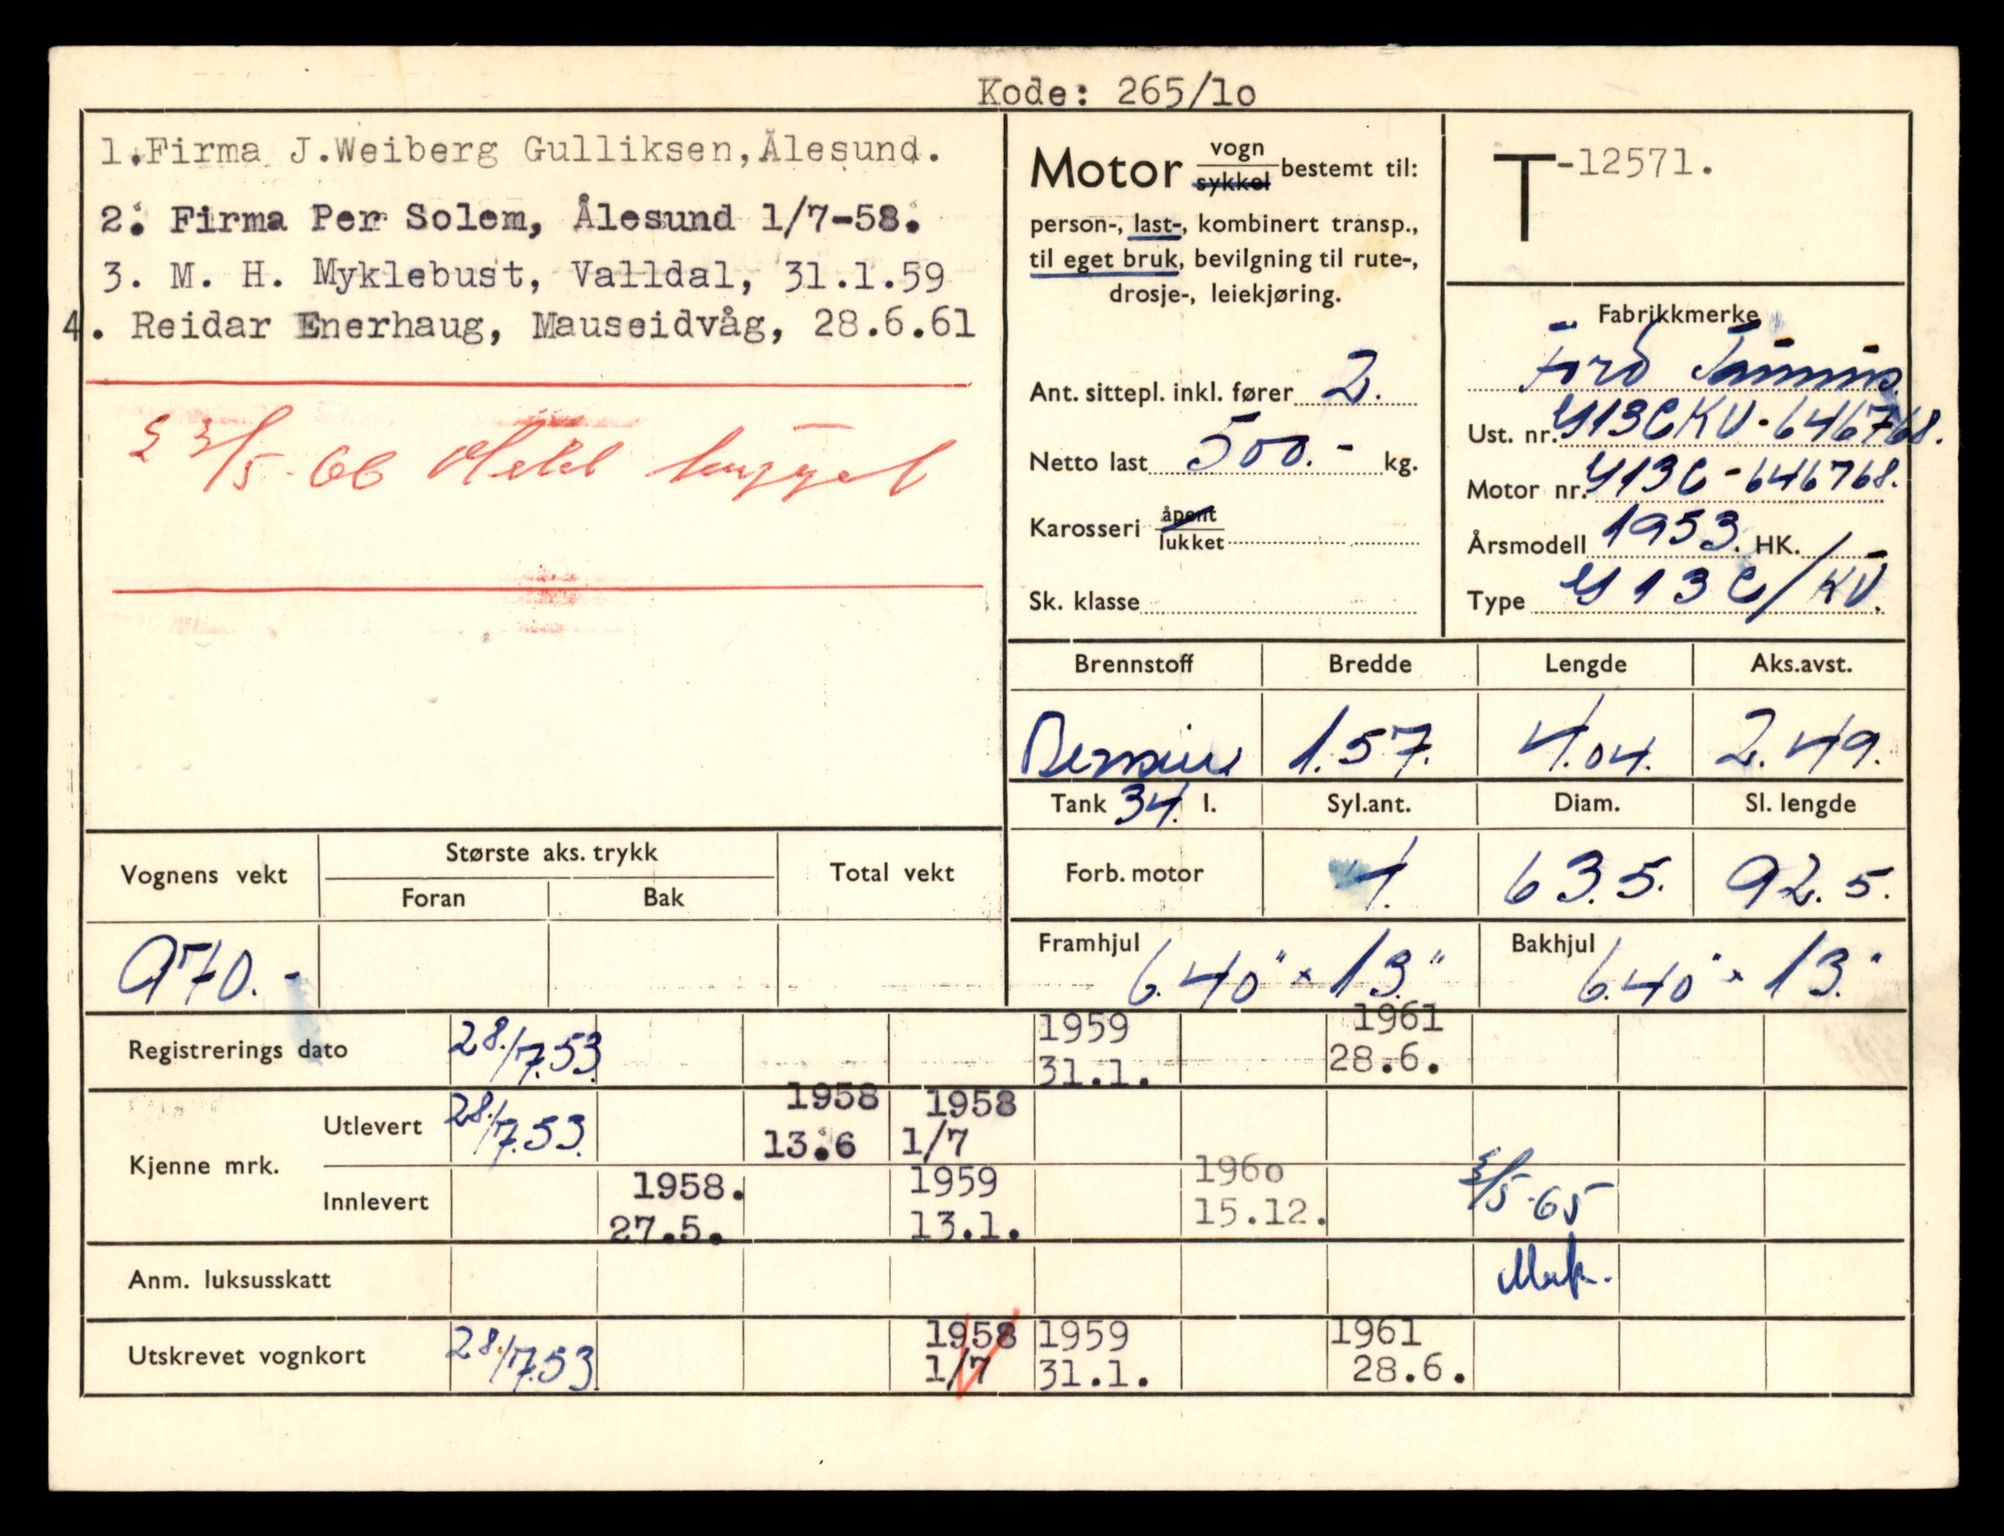 Kode: 265/1o
1.Firma J.Weiberg Gulliksen,Ålesund.
2. Firma Per Solem, Ålesund 1/7-58.
3. M. H. Myklebust, Valldal, 31.1.59
4. Reidar Enerhaug, Mauseidvåg, 28.6.61
/5-66 hugget
Motor vogn sykkel bestemt til:
person-, last-, kombinert transp.,
til eget bruk, bevilgning til rute-,
drosje-, leiekjøring.
Ant. sittepl. inkl. fører 2.
Netto last 500.- kg.
Karosseri åpent lukket
Sk. klasse
T-12571.
Fabrikkmerke
Ford Taunus
Ust. nr. G13CKV-646768.
Motor nr. G13C-646768.
Årsmodell 1953. HK.
Type G13C/KV.
Brennstoff Bredde Lengde Aks.avst.
Bensin 1.57. 4.04. 2.49.
Tank 34 l. Syl.ant. Diam. Sl. lengde
Forb. motor 4. 63.5. 92.5.
Framhjul 6.40" x 13." Bakhjul 6.40" x 13."
Vognens vekt Største aks. trykk Total vekt
Foran Bak
970.-
Registrerings dato 28./7.53. 1959 31.1. 1961 28.6.
Kjenne mrk.
Utlevert 28./7.53. 1958 13.6 1958 1/7
Innlevert 1958. 27.5. 1959 13.1. 196o 15.12. /5-65
Anm. luksusskatt
Utskrevet vognkort 28./7.53. 1958 1/7 1959 31.1. 1961 28.6.